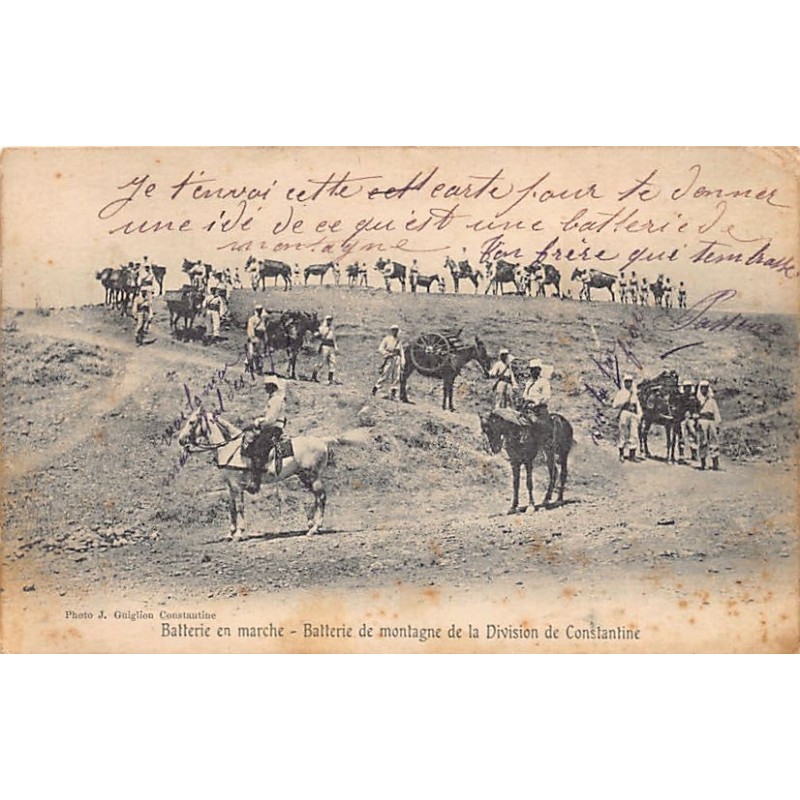 Je t'envoi cette carte pour te donner
une idé de ce qu'est une batterie de
montagne Ton frère qui tembrasse
Photo J. Guiglion Constantine
Batterie en marche - Batterie de montagne de la Division de Constantine